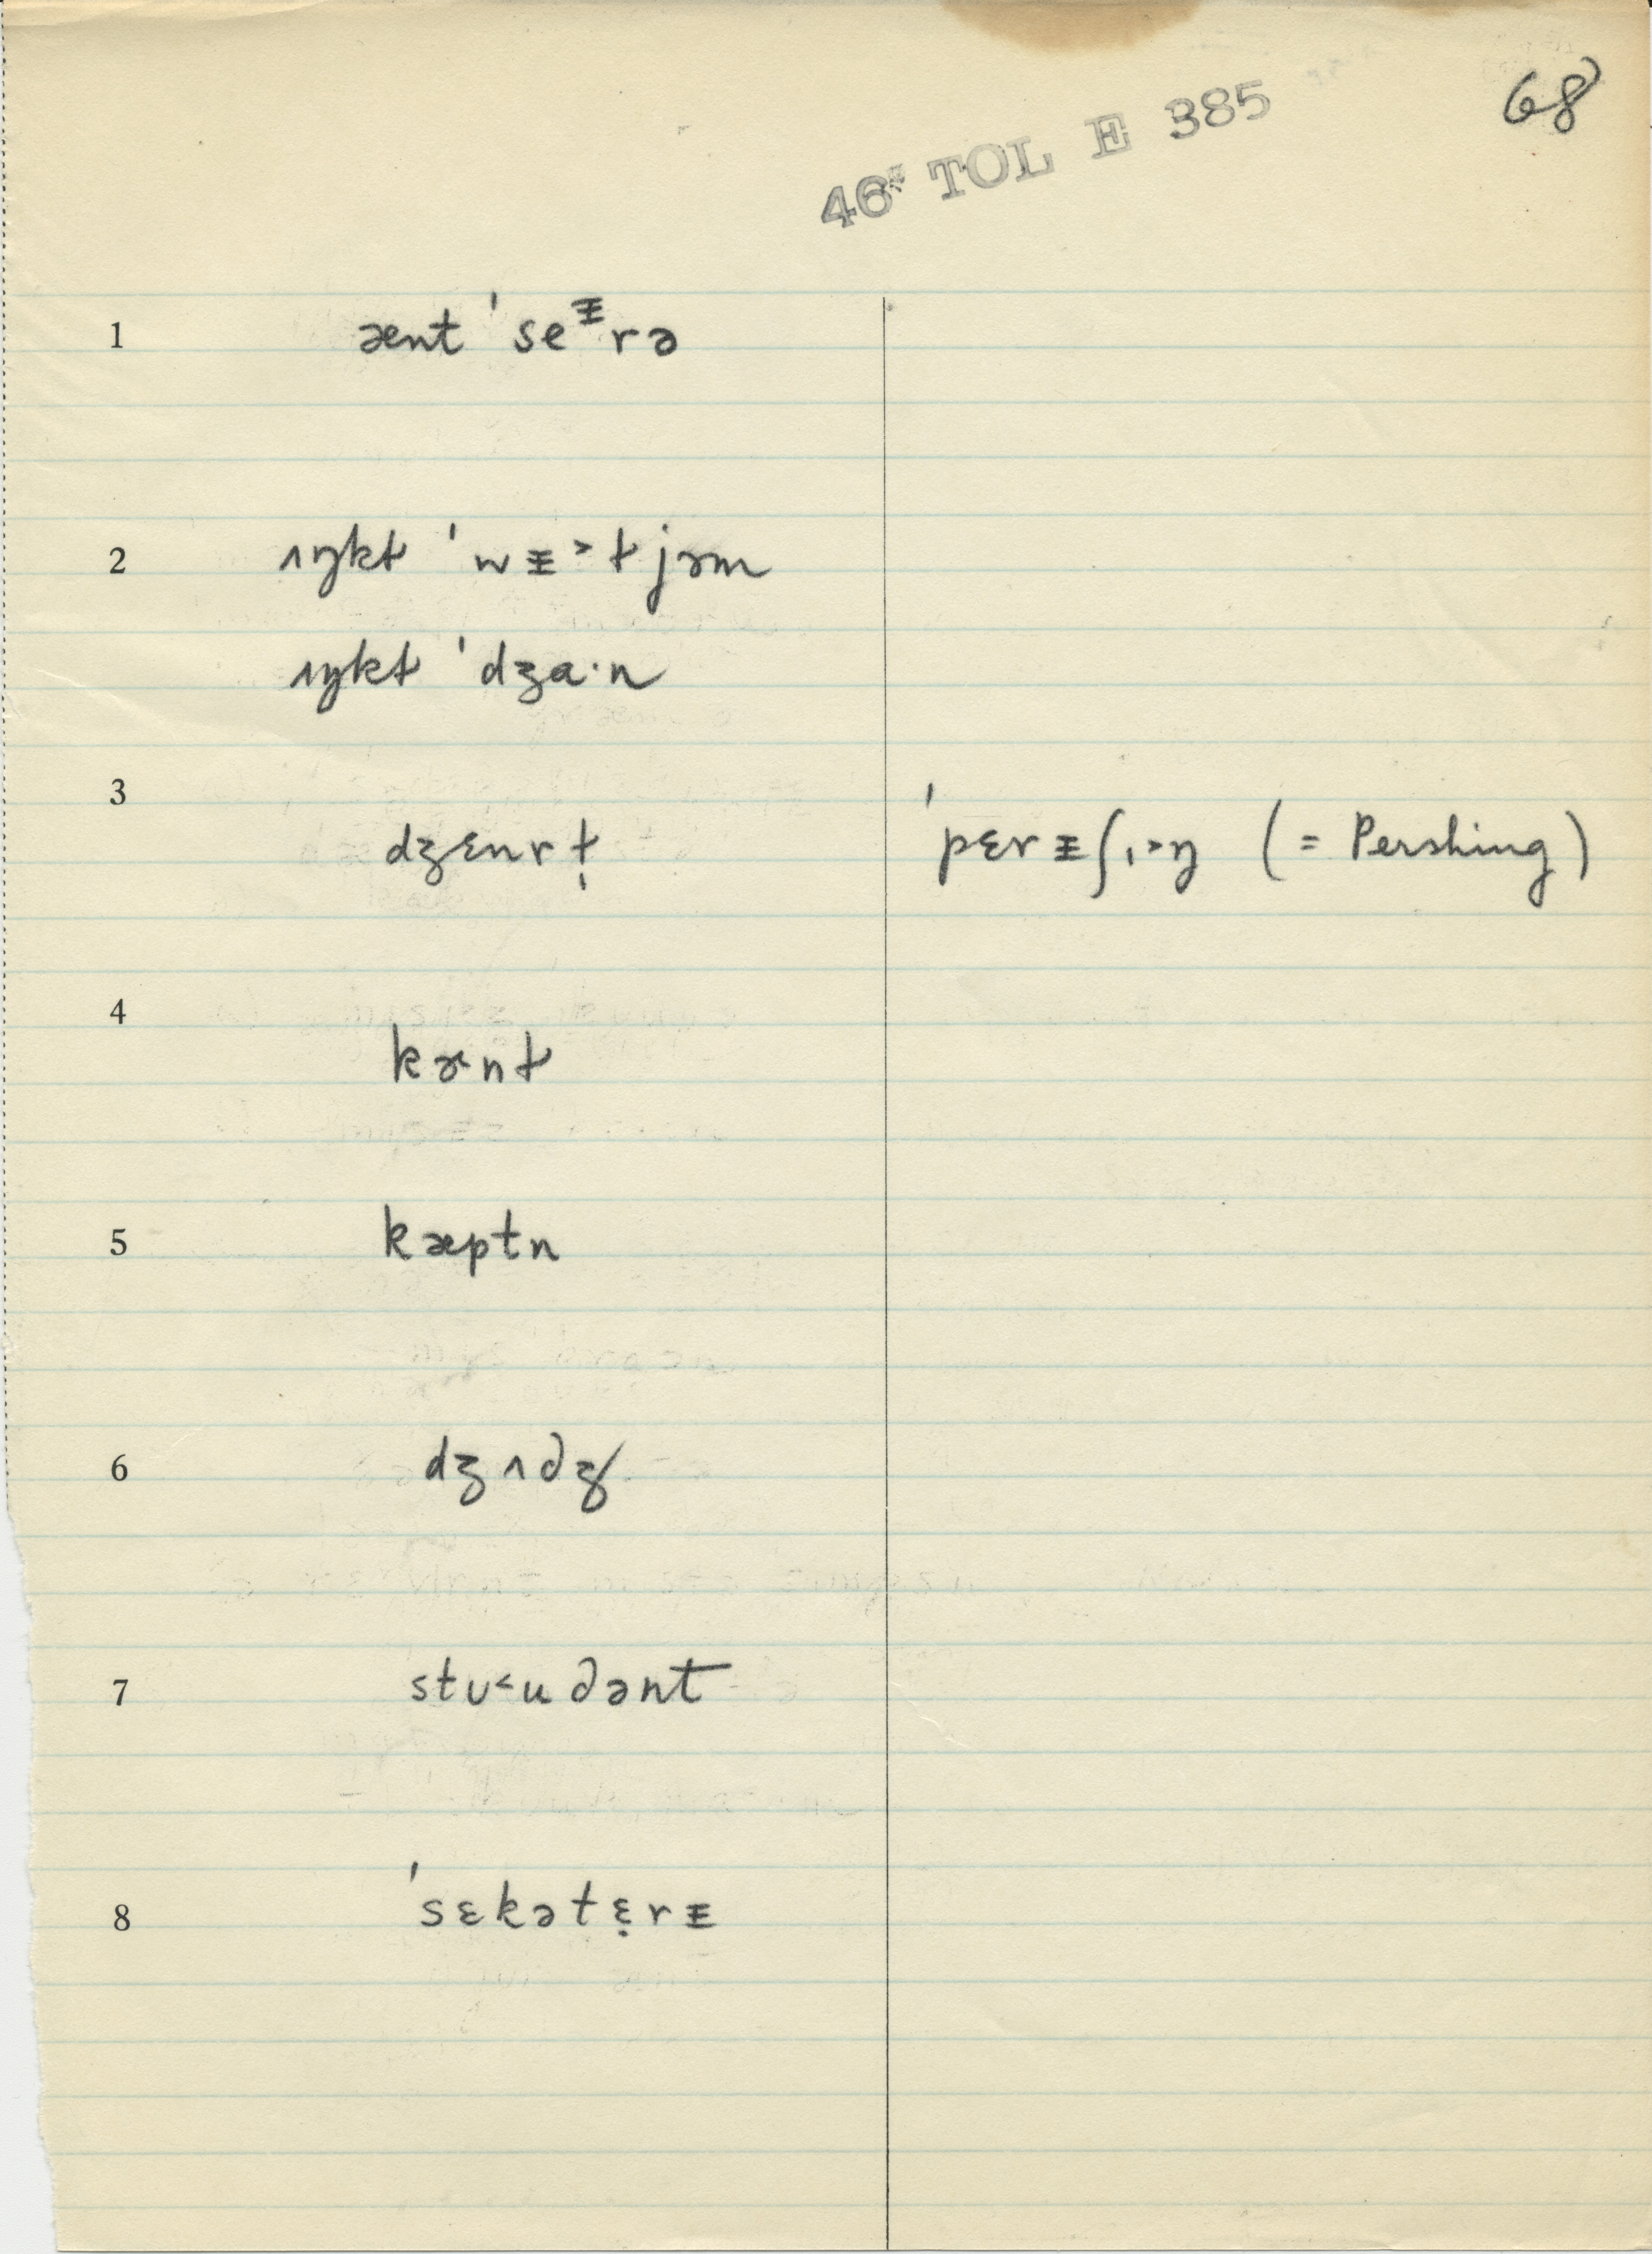 68
46* TOL E 385
1 ænt ˈseᵻrə
2 ʌŋkɫ ˈwᵻ˃ɫjəm
ʌŋkɫ ˈdʒɑ·n
3 dʒɛnrɫ̩ ˈpɛrᵻʃɪ˃ŋ (= Pershing)
4 kɚnɫ
5 kæptn
6 dʒʌdʒ
7 stʊ˂udənt
8 ˈsɛkətɛ̣rᵻ